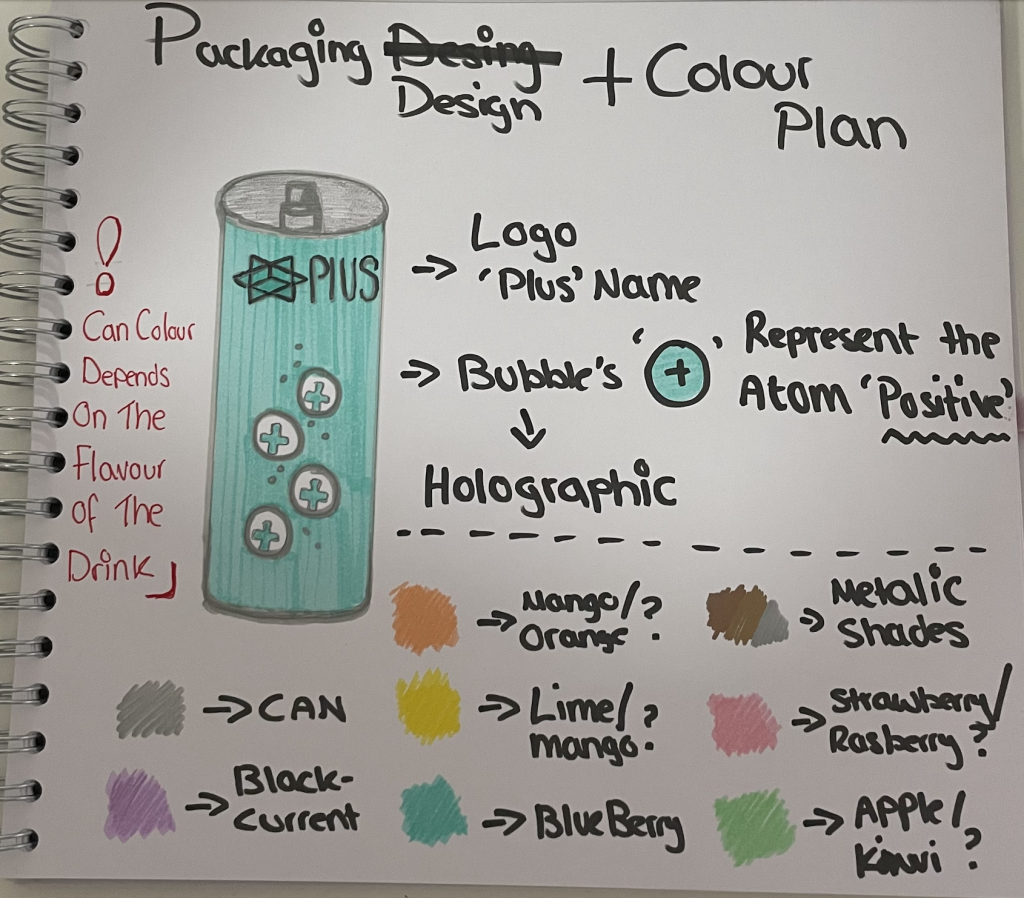 Packaging Desing + Colour
Design Plan
!
Can Colour
Depends
On The
Flavour
of The
Drink
PlUS
+
+
+
+
→ Logo
'Plus' Name
→ Bubble's '+' Represent the
Atom 'Positive'
↓
Holographic
→ Mango/?
Orange
→ Metalic
Shades
→ CAN
→ Lime/?
mango.
→ Strawberry/
Rasberry?
→ Black-
Current
→ BlueBerry
→ Apple/
Kiwi?